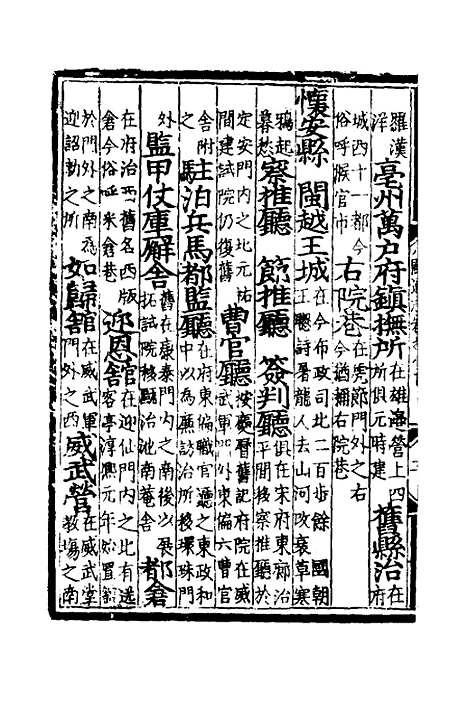 羅漢
洋
亳州萬户府鎮撫所
在雄邊營上四
所俱元時建
舊縣治
在
府
城西十一都今
俗呼候官市
右院巷
在虎節門外之右
今猶稱右院巷
懷安縣 閩越王城
在今布政司北二百步餘 國朝
王 詩 龍人去山河改衰草寒
鴉起
暮愁
察推廳 節推廳 簽判廳
俱在宋府東廊治
平間移察推廳於
定安門内之北元祐
間建試院仍復舊
曹官廳
按慶曆舊記府院在威
武軍門外東偏六曹官
舍附
之
駐泊兵馬都監廳
在府東偏職官廳之東政和
中以為廉訪治所移環珠門
外
監甲仗庫廨舍
舊在康泰門内之南後以展
拓試院移縣治池南菴舍
都倉
在府治西舊名西版
倉今俗呼米倉巷
迎恩舘
在迎仙門内之北有送
客亭淳熙元年始置館
於門外之南為
迎詔勅之所
如歸舘
在威武軍
門外之西
威武營
在威武堂
教塲之南